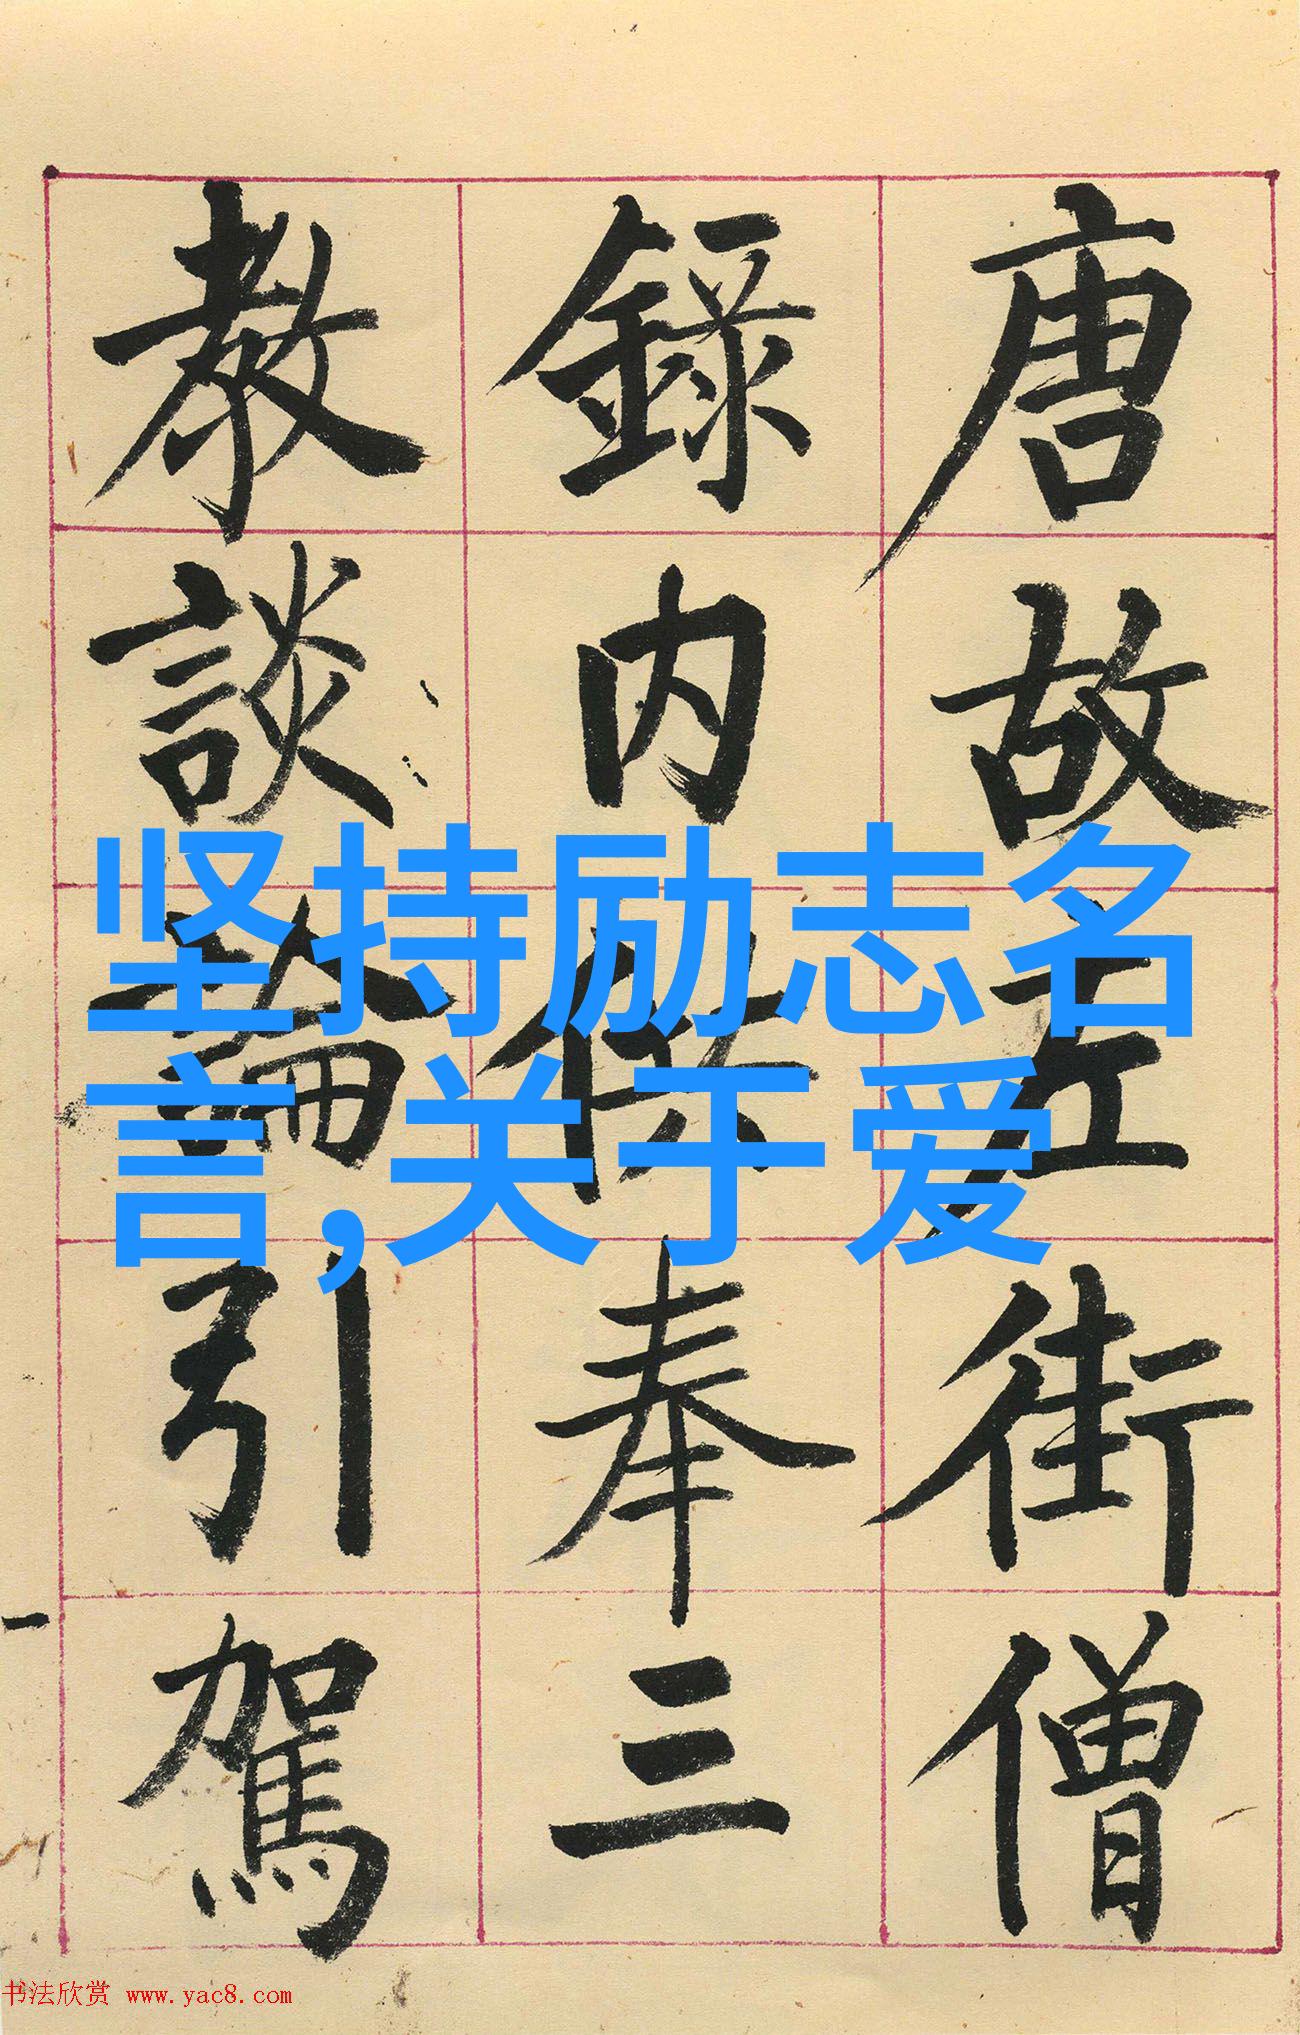 唐故左街僧
錄内供奉三
教談論引駕
坚持励志名
言,关于爱
书法欣赏 www.yac8.com